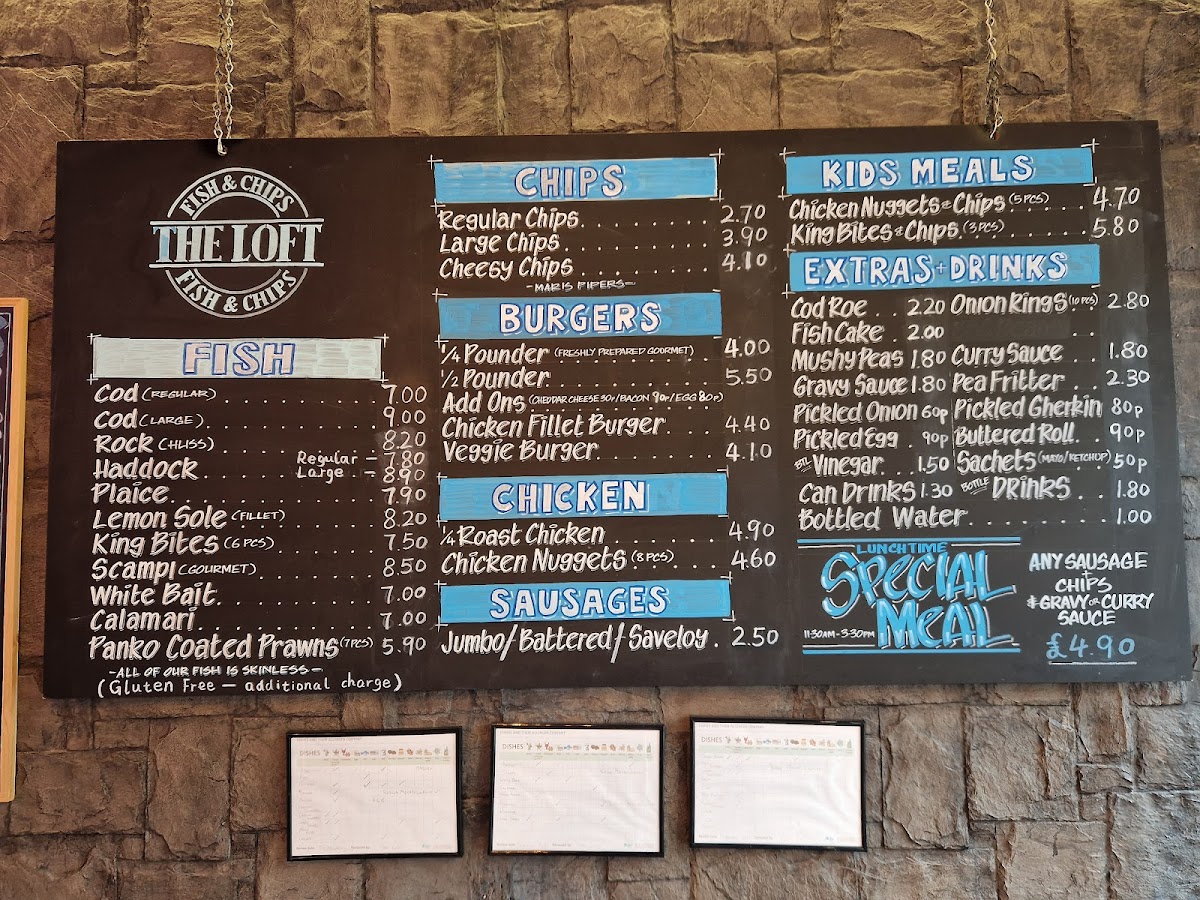 FISH & CHIPS
THE LOFT
FISH & CHIPS
FISH
Cod (REGULAR) 7.00
Cod (LARGE) 9.00
Rock (HUSS) 8.20
Haddock Regular - 7.80
Large - 8.90
Plaice 7.90
Lemon Sole (FILLET) 8.20
King Bites (6 PCS) 7.50
Scampi (GOURMET) 8.50
White Bait 7.00
Calamari 7.00
Panko Coated Prawns (7PCS) 5.90
- ALL OF OUR FISH IS SKINLESS -
(Gluten Free - additional charge)
CHIPS
Regular Chips 2.70
Large Chips 3.90
Cheesy Chips 4.10
- MARIS PIPERS -
BURGERS
1/4 Pounder (FRESHLY PREPARED GOURMET) 4.00
1/2 Pounder 5.50
Add Ons (CHEDDAR CHEESE 50P/BACON 90P/EGG 80P)
Chicken Fillet Burger 4.40
Veggie Burger 4.10
CHICKEN
1/4 Roast Chicken 4.90
Chicken Nuggets (8 PCS) 4.60
SAUSAGES
Jumbo/Battered/Saveloy 2.50
KIDS MEALS
Chicken Nuggets & Chips (5 PCS) 4.70
King Bites & Chips (3 PCS) 5.80
EXTRAS + DRINKS
Cod Roe 2.20 Onion Rings (10 PCS) 2.80
Fish Cake 2.00
Mushy Peas 1.80 Curry Sauce 1.80
Gravy Sauce 1.80 Pea Fritter 2.30
Pickled Onion 60p Pickled Gherkin 80p
Pickled Egg 90p Buttered Roll 90p
BTL Vinegar 1.50 Sachets (MAYO/KETCHUP) 50p
Can Drinks 1.30 BOTTLE DRINKS 1.80
Bottled Water 1.00
LUNCHTIME
SPECIAL
MEAL
11:30AM - 3:30PM
ANY SAUSAGE
+
CHIPS
& GRAVY OR CURRY
SAUCE
£4.90
DISHES
DISHES
DISHES